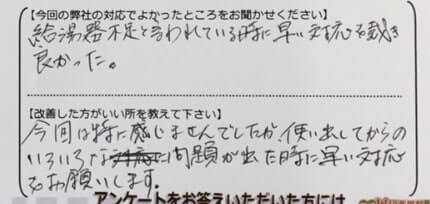 【今回の弊社の対応でよかったところをお聞かせください】
給湯器不足と言われている時に早い対応を戴き
良かった。
【改善した方がいい所を教えて下さい】
今回は特に感じませんでしたが、使い出してからの
いろいろな問題が出た時に早い対応
をお願いします。
アンケートをお答えいただいた方には